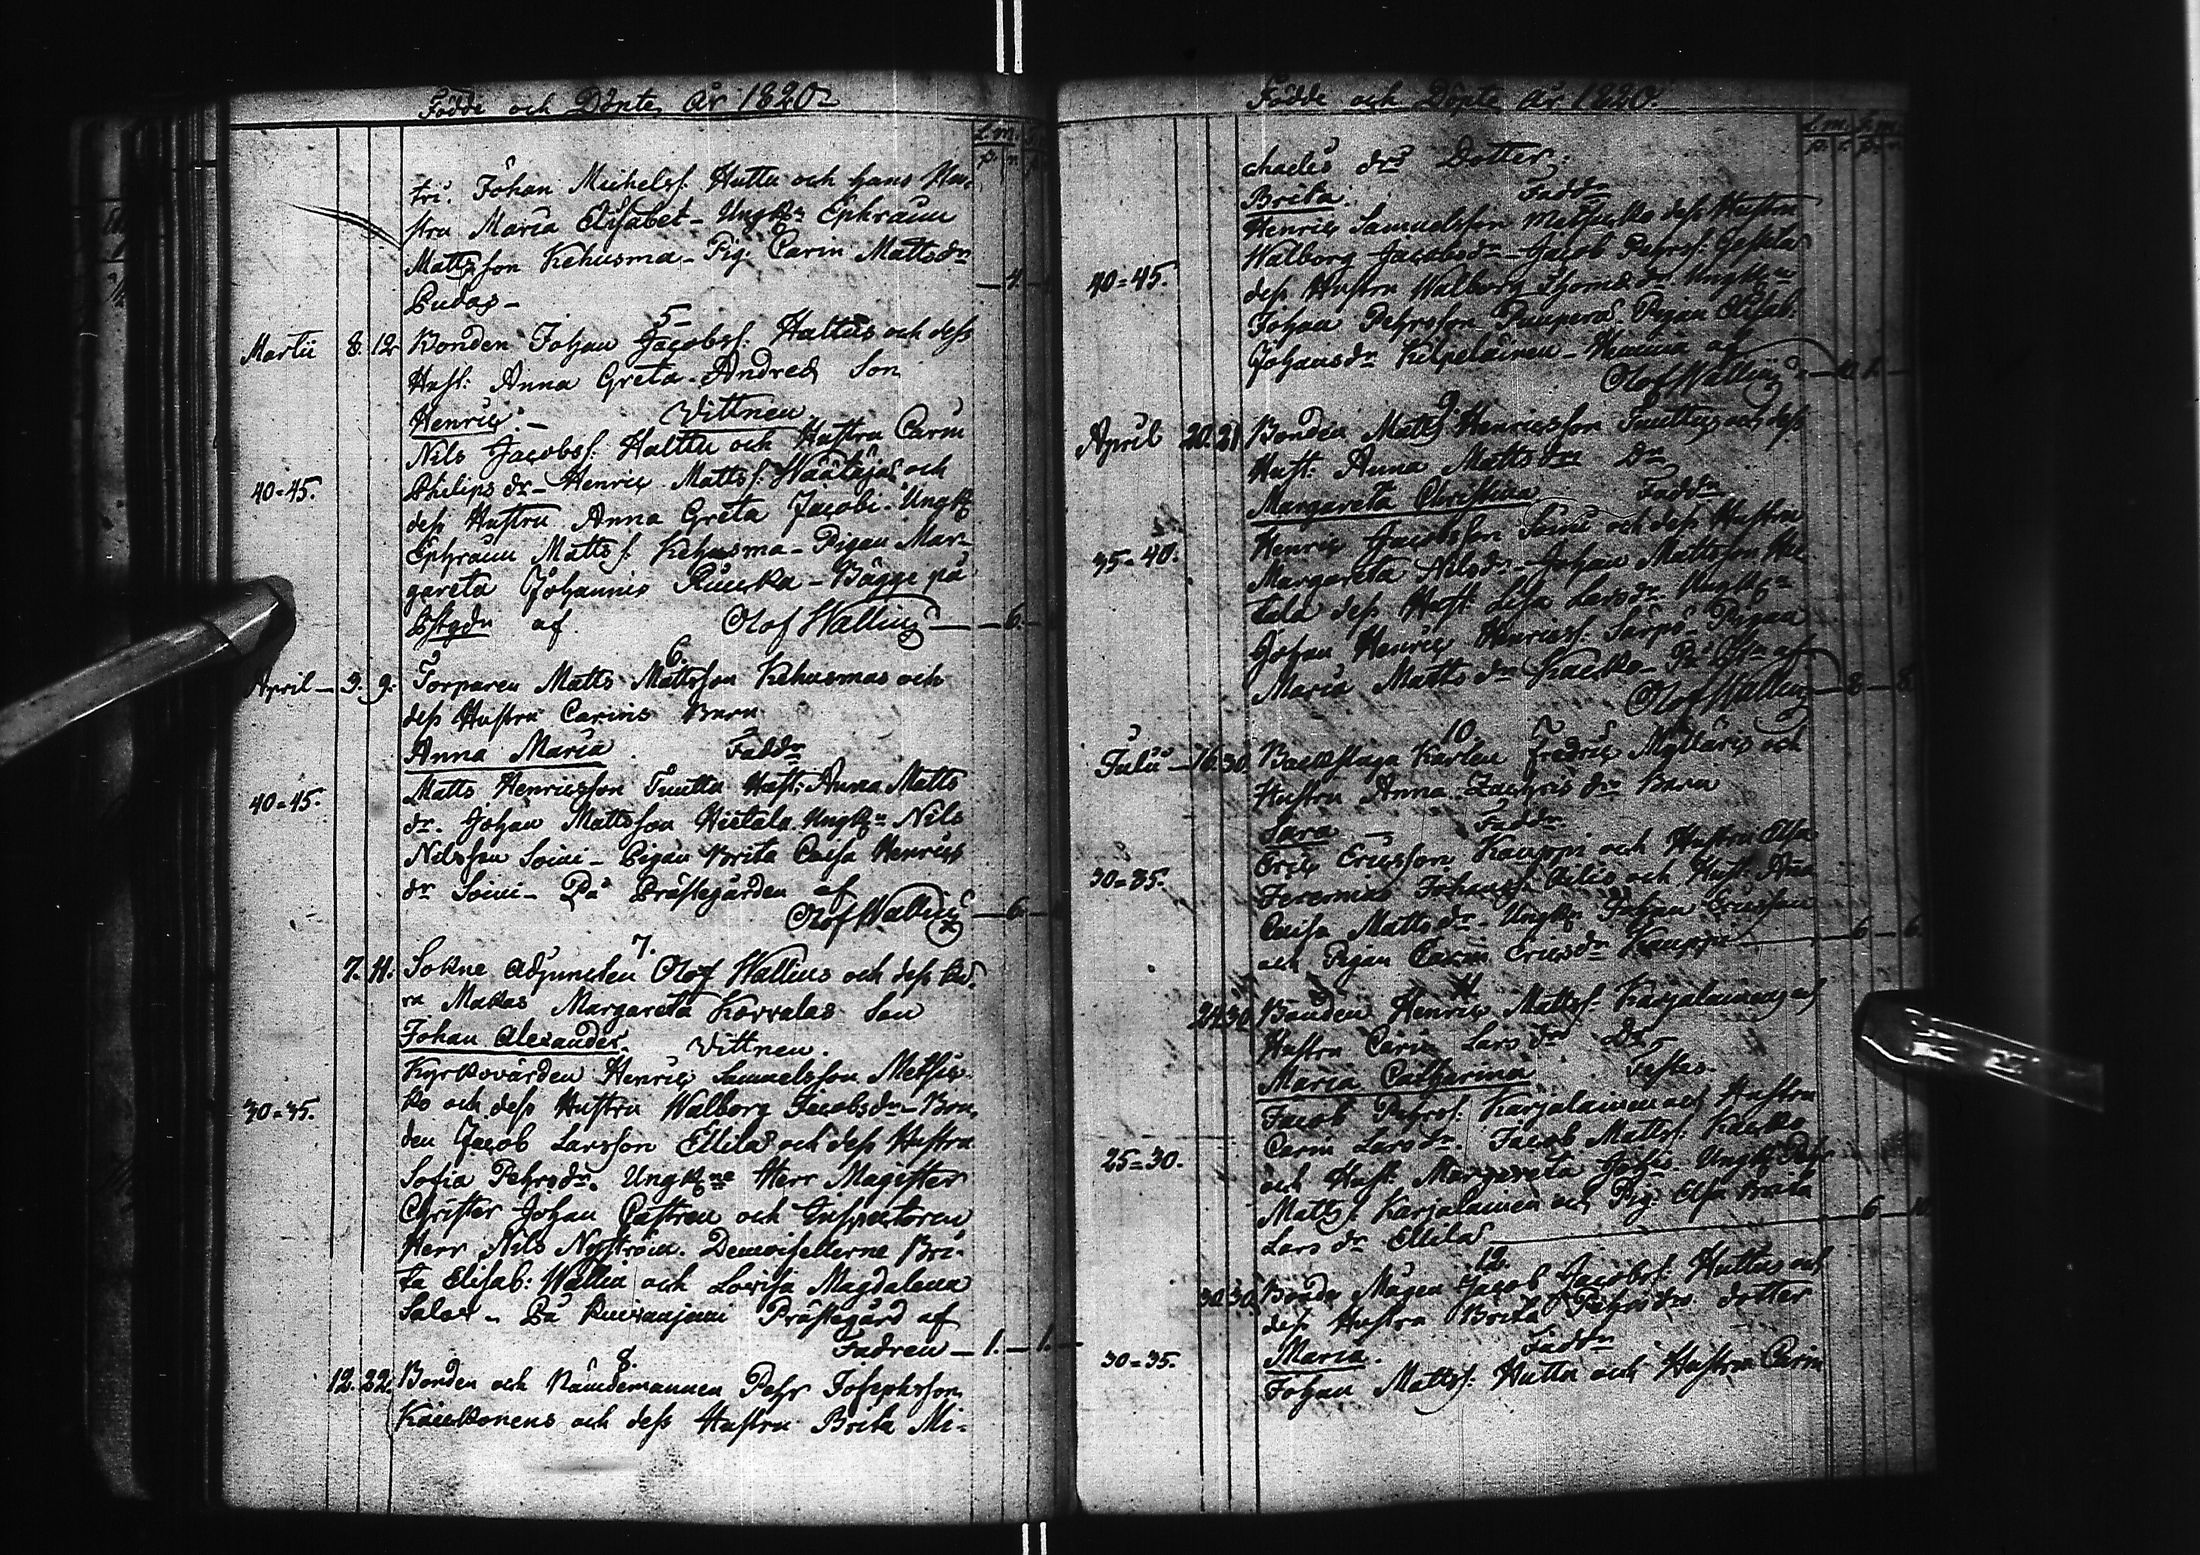 Födde och Döpte år 1820
tri. Johan Michelss. Huttu och hans Hu-
stru Maria Elisabet - Ungk:n Ephraim
Mattsson Kehusma - Pig: Carin Mattsdr
Pudas - 4 -
5
Martii 8. 12 Bonden Johan Jacobss: Haltus och dess
Hust: Anna Greta Andreæ Son
Henric: - Vittnen
Nils Jacobss. Halttu och Hustru Carin
40=45. Philips dr - Henric Mattss: och
dess Hustru Anna Greta Jacobi. Ungk:
Ephraim Mattss. Kehusma - Pigan Mar-
gareta Johannis - Bägge på
af Olof Wallius - 6. -
6.
April - 3. 9. Torparen Matts Mattsson Kehusmas och
dess Hustru Carins Barn
Anna Maria Faddr
40=45. Matts Henricsson Tuuttu Hust: Anna Matts
dr. Johan Mattsson Hietala. Ungk:n Nils
Nilsson Soini - Pigan Brita Caisa Henrics
dr Soini - På Prästegården af
Olof Wallius - 6 -
7.
7. 11. Sokne Adjuncten Olof Wallius och dess kä-
ra Makas Margareta Korvalas Son
Johan Alexander. Vittnen.
Kyrkovärden Henric Samuelsson
30=35. ko och dess Hustru Walborg Jacobsdr - Bon-
den Jacob Larsson Ellilä och dess Hustru
Sofia Pehrsdr. Ungk:ne Herr Magister
Christer Johan Castren och Inspectoren
Herr Nils Nyström. Demoisellerne Bri-
ta Elisab: Wallia och Lovisa Magdalena
- På Prästegård af
Fadren - 1. - 1. -
8.
12. 22. Bonden och Nämdemannen Pehr Josephsson
och dess Hustru Brita Mi-
Födde och Döpte år 1820.
chaelis drs Dotter.
Brita. Faddr
Henric Samuelsson dess Hustru
Walborg Jacobsdr - Jacob Pehrss.
40=45. dess Hustru Walborg Thomædr Ungk:n
Johan Pehrsson Pigan Elisab.
Johansdr Kilpeläinen - Hemma af
Olof Wallius
9
April 20. 21 Bonden Matts Henricsson Tuuttus och dess
Hust: Anna Mattsdrs Dr
Margareta Christina Faddr
Henric Jacobsson Soini och dess Hustru
35=40. Margareta Nilsdr - Johan Mattsson Hie-
tala dess Hust: Lisa Larsdr Ungk:n
Johan Henric Henricss. Pigan
Maria Mattsdr af
Olof Wallius - 8 - 8
10.
Julii - 16. 30. Backstuga Karlen Fredric och
Hustru Anna Zachrisdrs Barn
Sara - Faddr
Eric Ericsson Kauppi och Hustru
30=35. Johanss. och Hust: Anna
Caisa Mattsdr - Ungk:n Johan Ericsson
och Pigan Carin Ericsdr Kauppi - 6 - 6
11
24. 30. Bonden Henric Mattss: Karjalainens och
Hustru Carin Larsdrs Dr
Maria Catharina Testes.
Jacob Pehrss: Karjalainen och Hustru
Carin Larsdr Jacob Mattss:
25=30. och Hust: Margareta Ungk: Pehr
Mattss. Karjalainen och Pig: Brita
Larsdr Ellilä - 6 - 10
12.
30. 30. Bonde Mågen Jacob Jacobss. Huttus och
dess Hustru Brita Pehrsdrs dotter
30=35. Maria. Faddr
Johan Mattss. Huttu och Hustru Carin